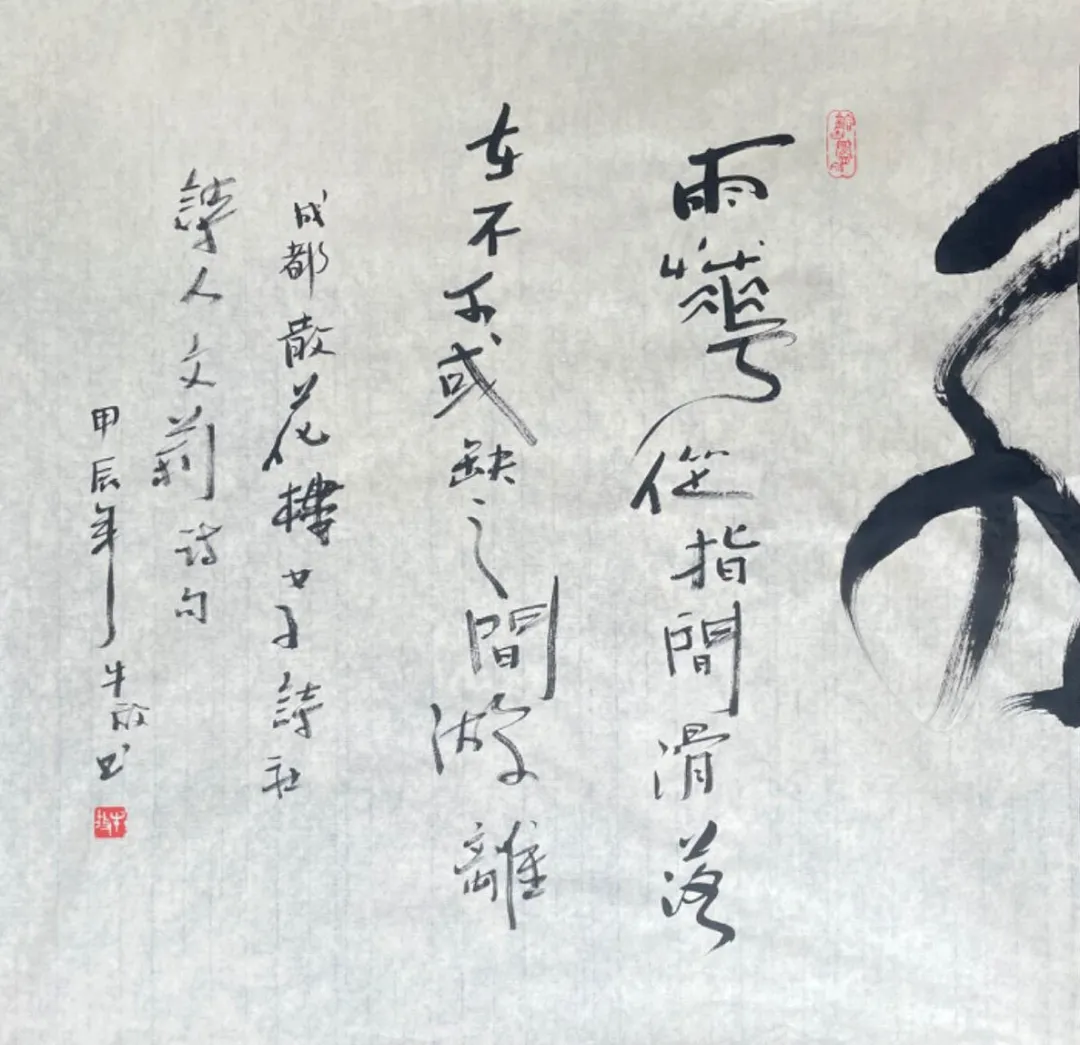 雨華從指間滑落
在不可或缺之間游離
成都散花樓女子詩社
詩人文莉诗句
甲辰年牛放书